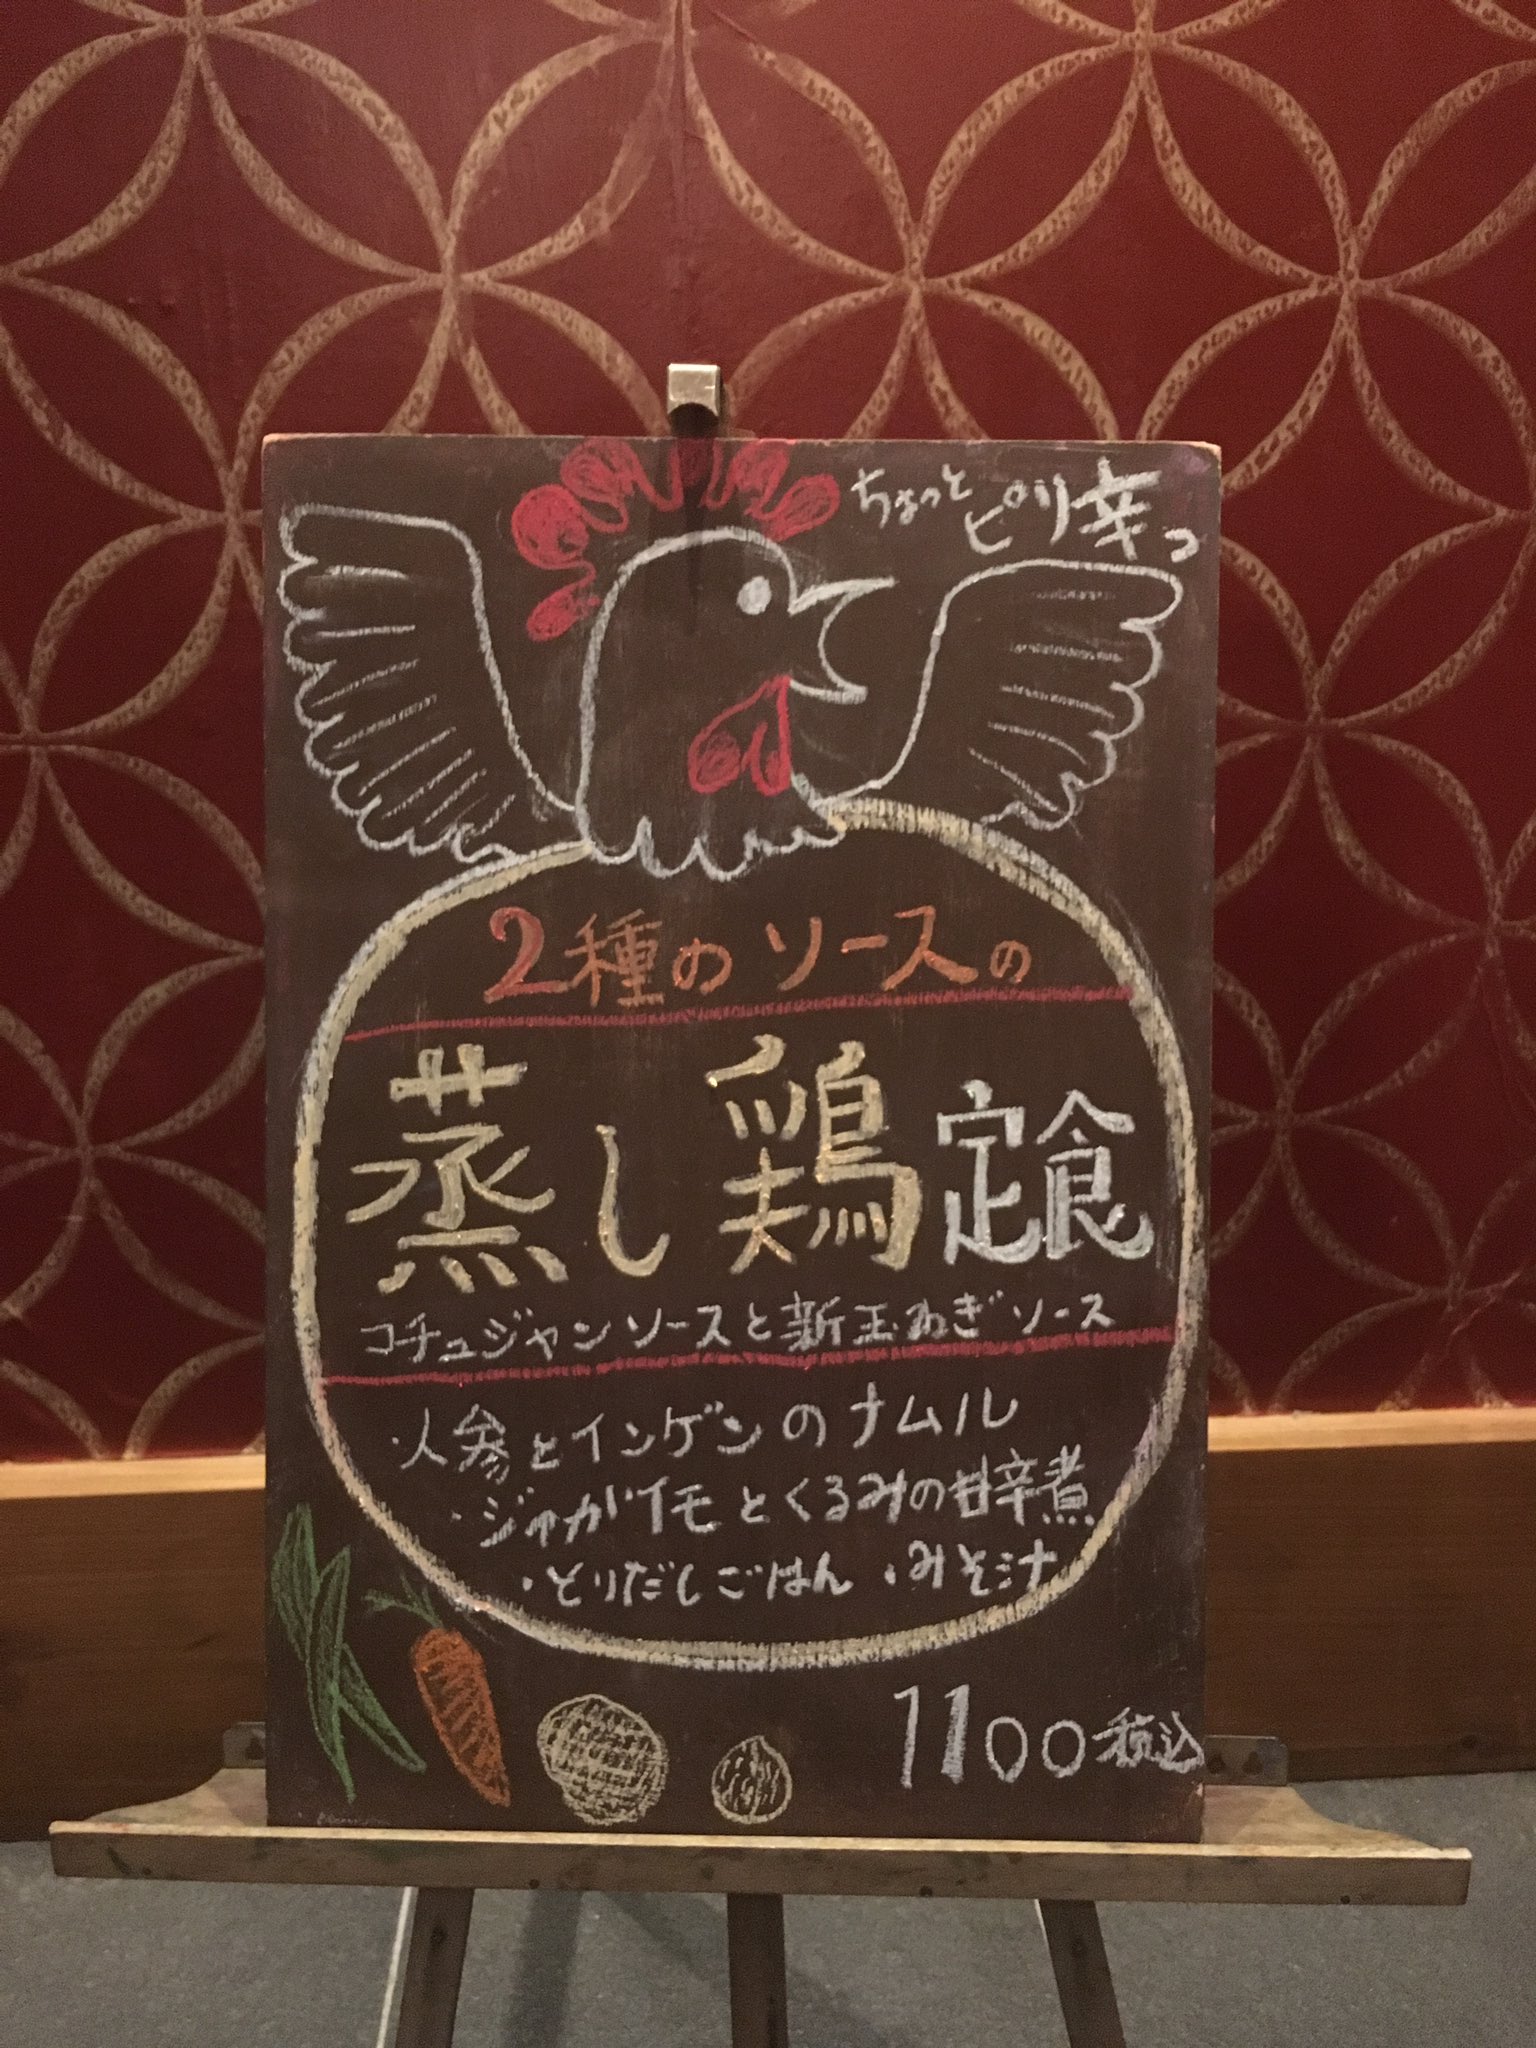 ちょっと
ピリ辛っ
2種のソースの
蒸し鶏定食
コチュジャンソースと新玉ねぎソース
・人参とインゲンのナムル
・ジャガイモとくるみの甘辛煮
・とりだしごはん ・みそ汁
1100税込